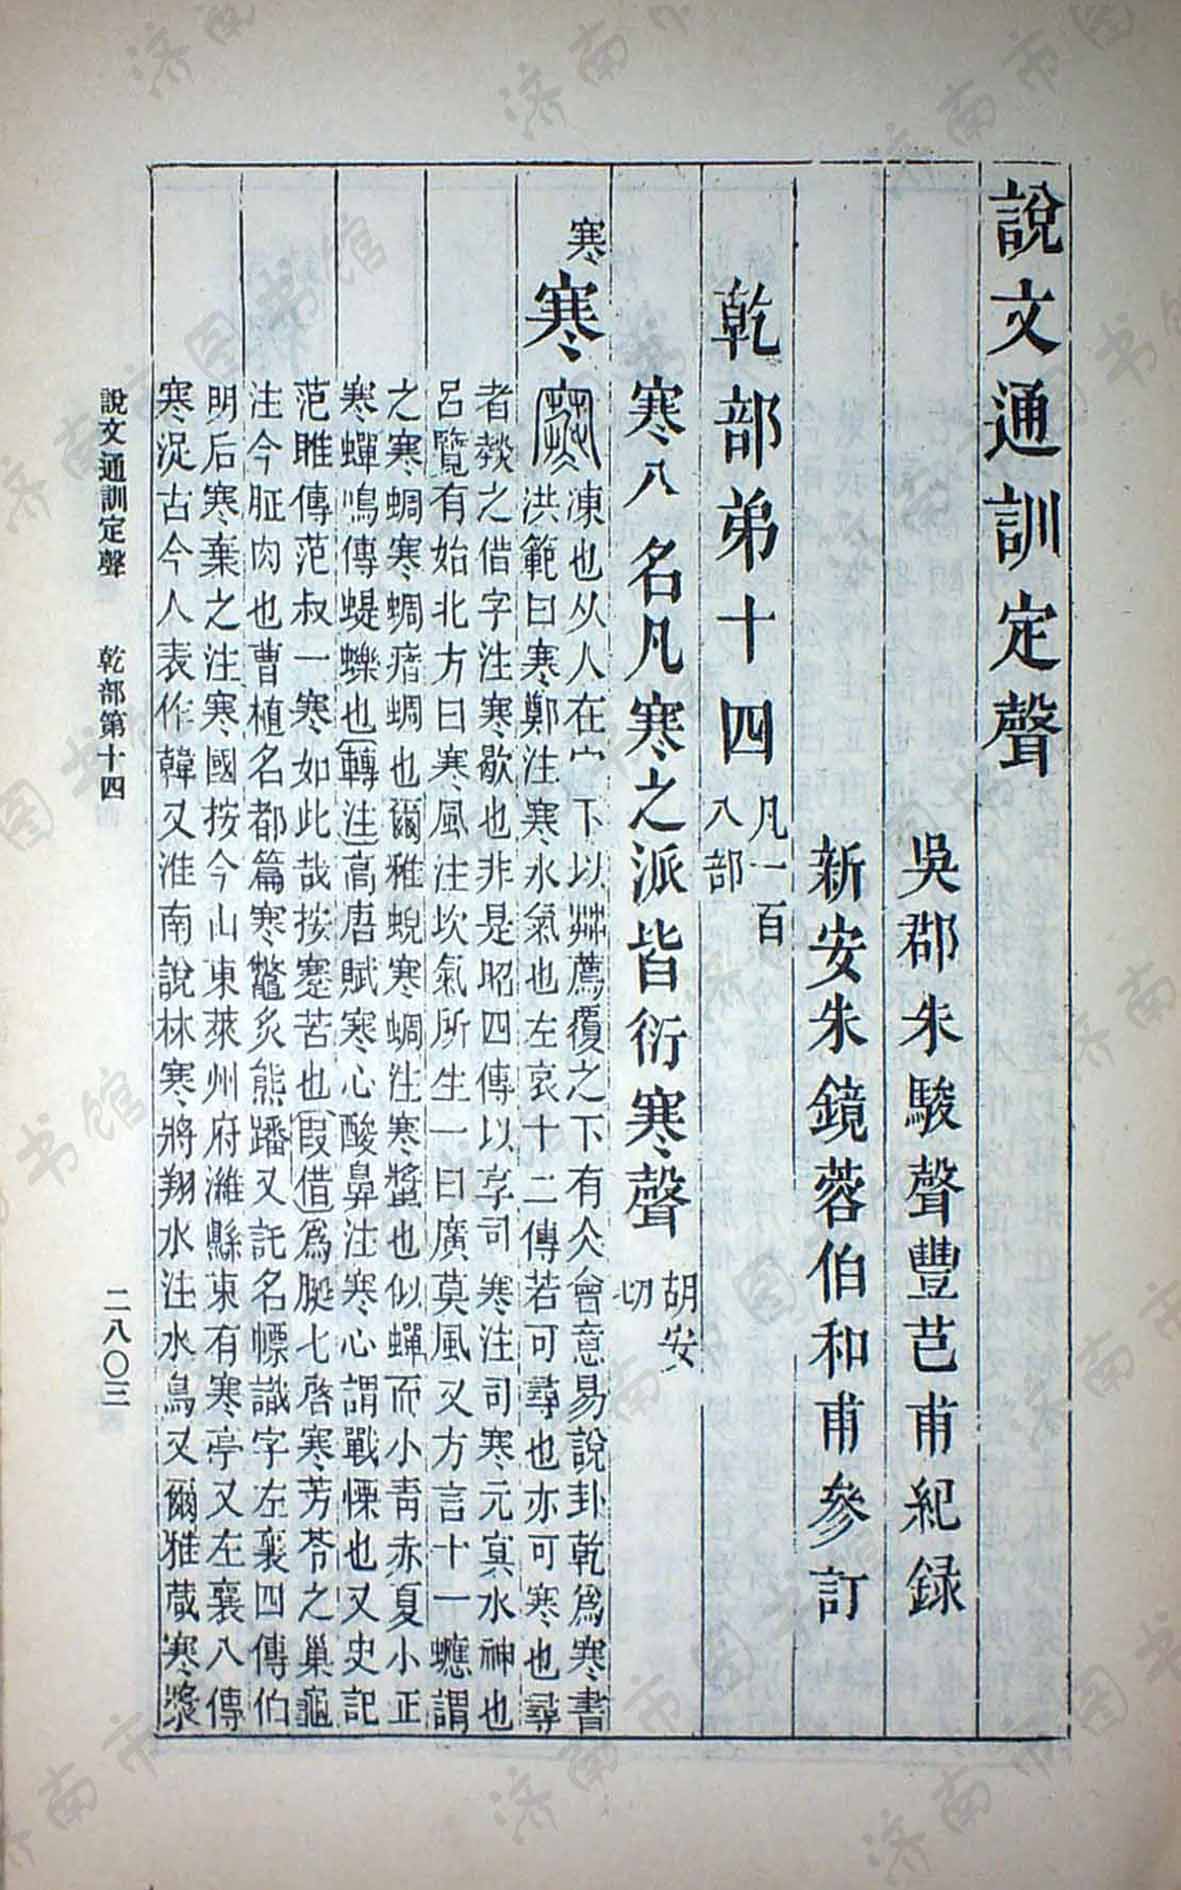 說文通訓定聲
吳郡朱駿聲豐芑甫紀錄
新安朱鏡蓉伯和甫參訂
乾部弟十四
凡一百
八部
寒八名凡寒之派皆衍寒聲
胡安
切
寒
寒
凍也从人在宀下以茻薦覆之下有仌會意易說卦乾爲寒書
洪範曰寒鄭注寒水氣也左哀十二傳若可尋也亦可寒也尋
者燅之借字注寒歇也非是昭四傳以享司寒注司寒元冥水神也
呂覽有始北方曰寒風注坎氣所生一曰廣莫風又方言十一蟪謂
之寒蜩寒蜩瘖蜩也爾雅蜺寒蜩注寒螿也似蟬而小青赤夏小正
寒蟬鳴傳蝭蠑也轉注高唐賦寒心酸鼻注寒心謂戰慄也又史記
范雎傳范叔一寒如此哉按蹇苦也叚借爲䐄七啓寒芳苓之巢龜
注今脠肉也曹植名都篇寒鼈炙熊蹯又託名幖識字左襄四傳伯
明后寒棄之注寒國按今山東萊州府濰縣東有寒亭又左襄八傳
寒浞古今人表作韓又淮南說林寒將翔水注水鳥又爾雅葴寒漿
說文通訓定聲 乾部第十四 二八〇三